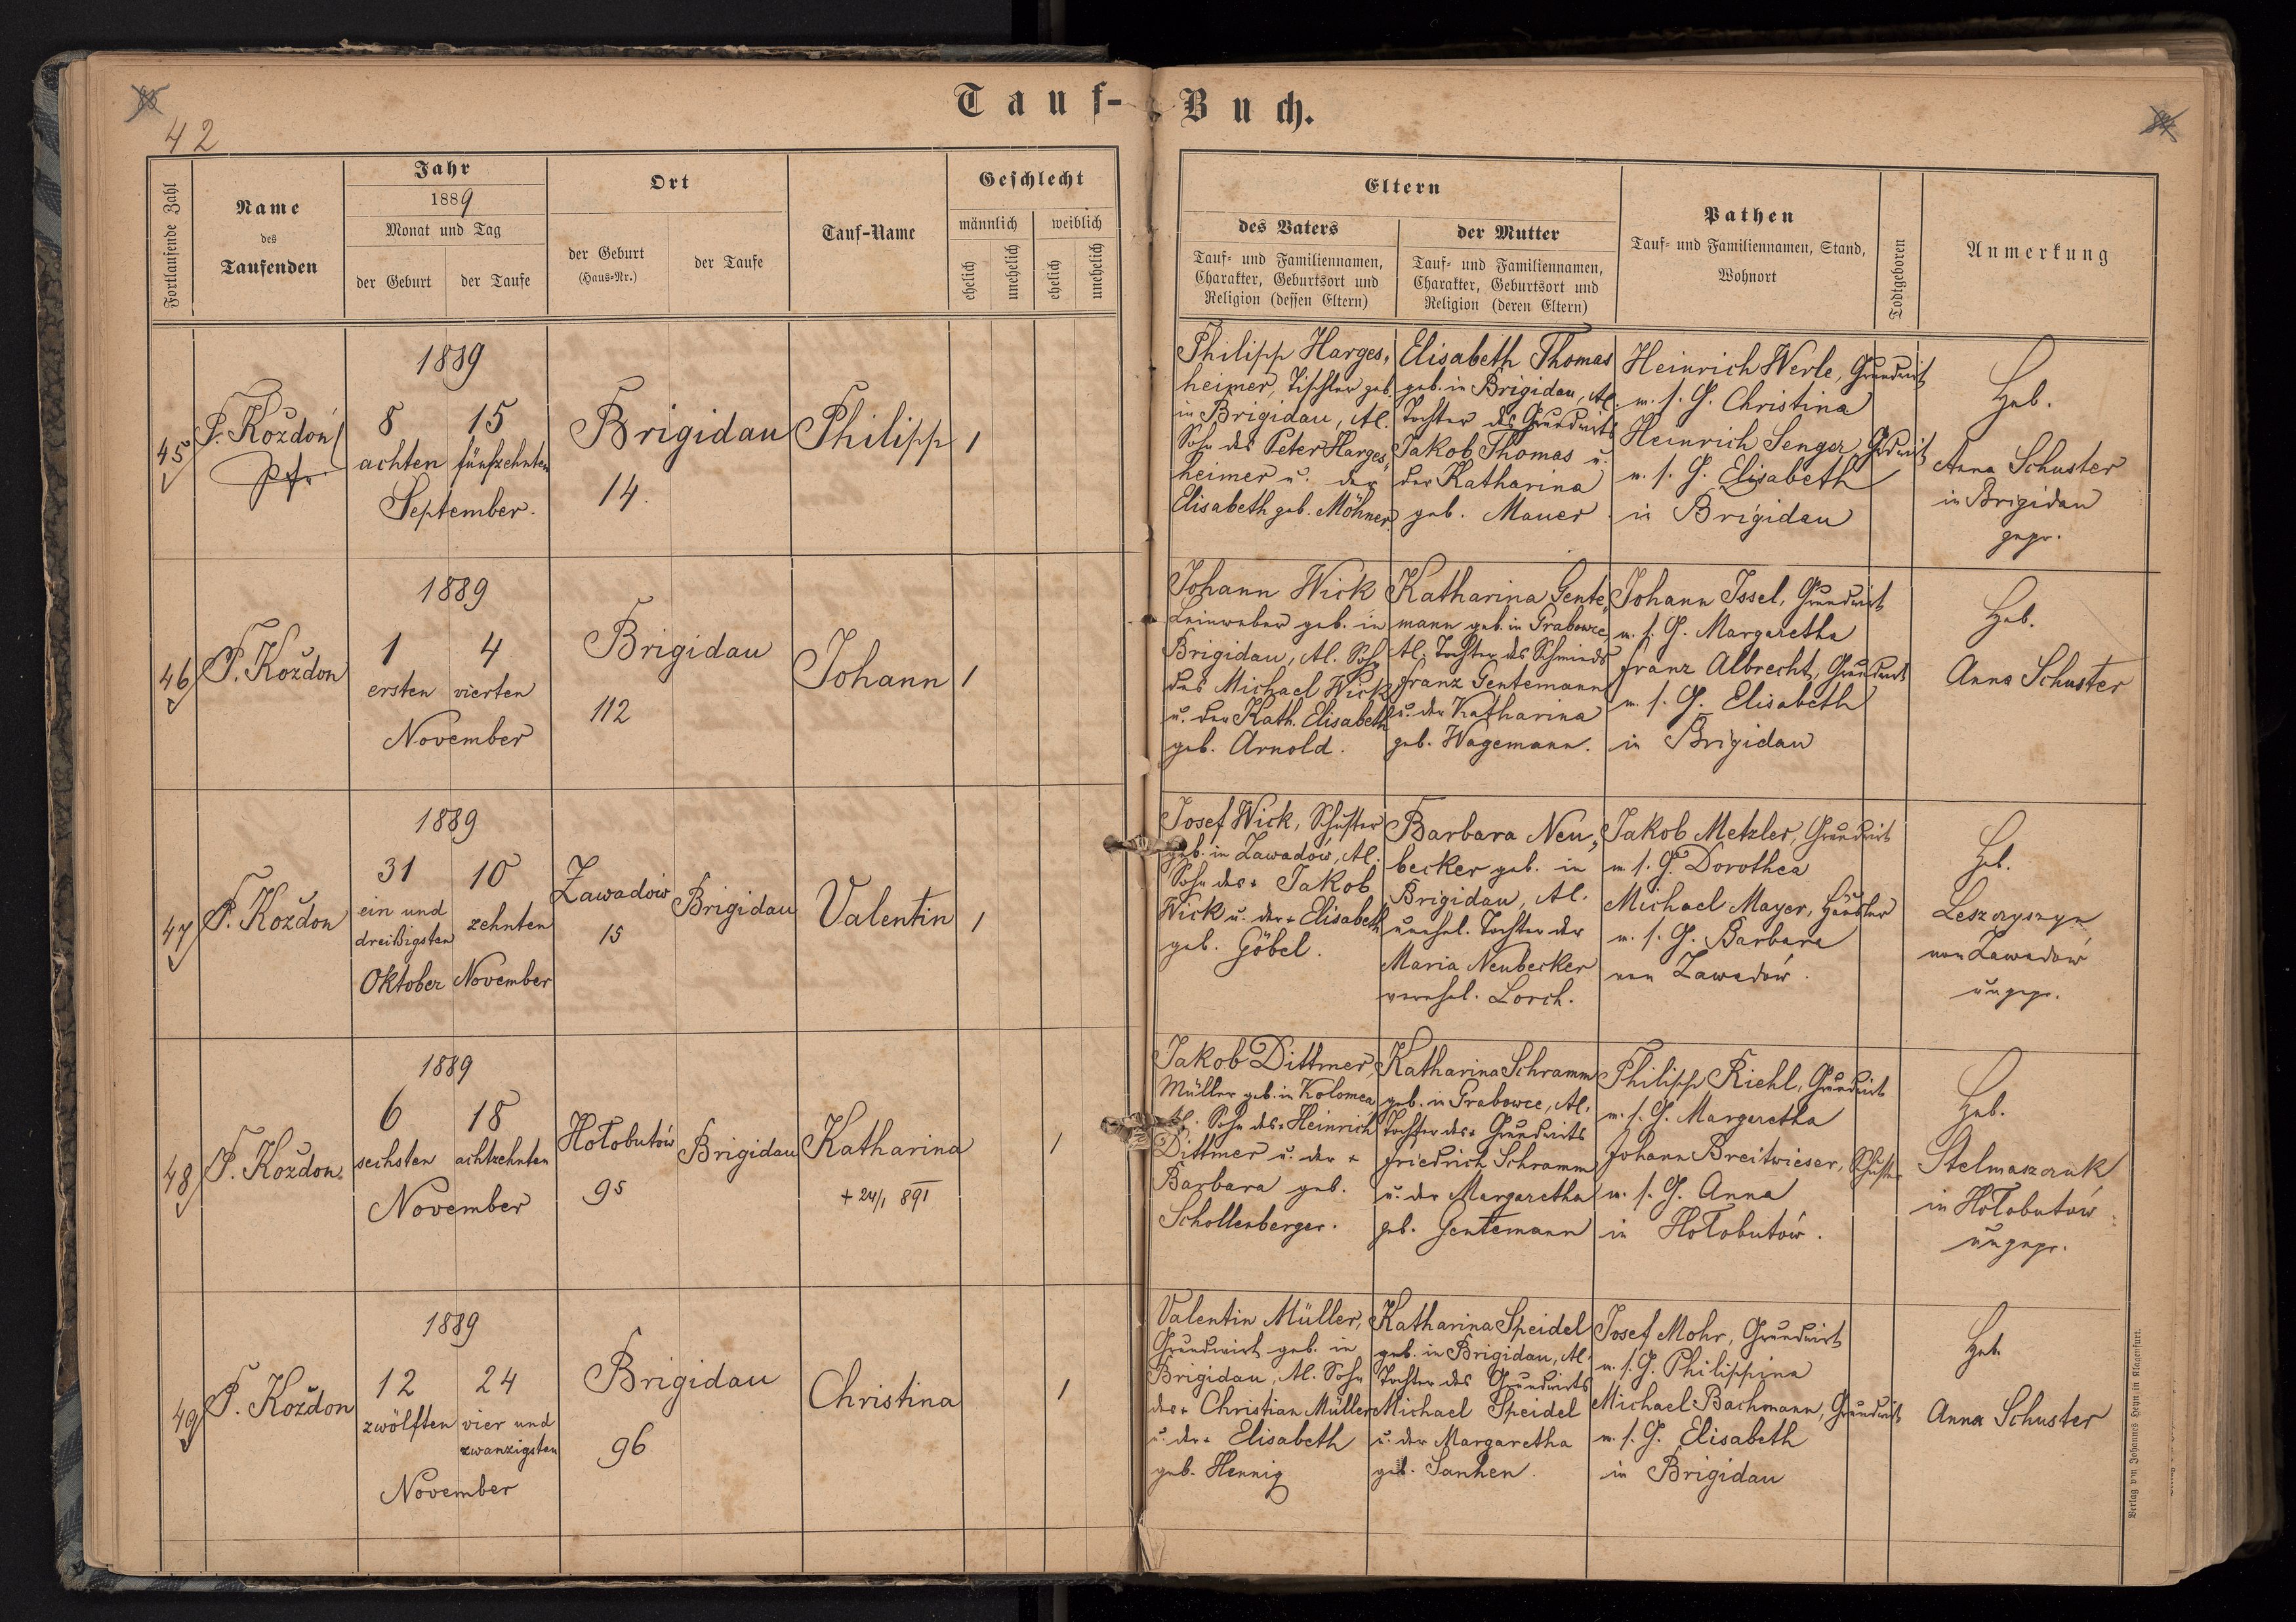 42
Tauf-Buch.
Fortlaufende Zahl
Name
des
Taufenden
Jahr
1889
Monat und Tag
der Geburt
der Taufe
Ort
der Geburt
(Haus-Nr.)
der Taufe
Tauf-Name
Geschlecht
männlich
weiblich
ehelich
unehelich
ehelich
unehelich
Eltern
des Vaters
Tauf- und Familiennamen,
Charakter, Geburtsort und
Religion (dessen Eltern)
der Mutter
Tauf- und Familiennamen,
Charakter, Geburtsort und
Religion (deren Eltern)
Pathen
Tauf- und Familiennamen, Stand,
Wohnort
Todtgeboren
Anmerkung
45
P. Kozdoń
Pfr
1889
8
15
achten
fünfzehnten
September.
Brigidau
14.
Philipp
1
Philipp Harges-
heimer, Tischler geb.
in Brigidau, Al.
Sohn des Peter Harges-
heimer u. der
Elisabeth geb. Möhner.
Elisabeth Thomas
geb. in Brigidau, Al.
Tochter des Grundwirts
Jakob Thomas u.
der Katharina
geb. Mauer
Heinrich Werle, Grundwirt
m. s. G. Christina
Heinrich Senger, Grdwirt
m. s. G. Elisabeth
in Brigidau
Heb.
Anna Schuster
in Brigidau
gepr.
46
P. Kozdon
1889
1
4
ersten
vierten
November
Brigidau
112
Johann
1
Johann Wick
Leinweber geb. in
Brigidau, Al. Sohn
des Michael Wick
u. der Kath. Elisabeth
geb. Arnold.
Katharina Gente-
mann geb. in Grabowce,
Al. Tochter des Schmieds
Franz Gentemann
u. der Katharina
geb. Wagemann.
Johann Issel, Grundwirt
m. s. G. Margaretha
Franz Albrecht, Grundwirt
m. s. G. Elisabeth
in Brigidau
Heb.
Anna Schuster
47
P. Kozdon
1889
31
10
ein und
dreißigsten
zehnten
Oktober
November
Zawadów
15
Brigidau
Valentin
1
Josef Wick, Schuster
geb. in Zawadów, Al.
Sohn des + Jakob
Wick u. der + Elisabeth
geb. Göbel.
Barbara Neu-
becker geb. in
Brigidau, Al.
unehel. Tochter der
Maria Neubecker
verehel. Lorch.
Jakob Metzler, Grundwirt
m. s. G. Dorothea
Michael Mayer, Häusler
m. s. G. Barbara
von Zawadów.
Heb.
Leszczyszyn
von Zawadów
ungepr.
48
P. Kozdon.
1889
6
18
sechsten
achtzehnten
November
Hołobutów
95
Brigidau
Katharina
+ 24/1 891
1
Jakob Dittmer,
Müller geb. in Kolomea
Al. Sohn des + Heinrich
Dittmer u. der +
Barbara geb.
Schollenberger.
Katharina Schramm
geb. in Grabowce, Al.
Tochter des + Grundwirts
Friedrich Schramm
u. der Margaretha
geb. Gentemann
Philipp Riehl, Grundwirt
m. s. G. Margaretha
Johann Breitwieser, Schuster
m. s. G. Anna
in Hołobutów.
Heb.
Stelmaszczuk
in Hołobutów
ungepr.
49
P. Kozdon
1889
12
24
zwölften
vier und
zwanzigsten
November
Brigidau
96
Christina
1
Valentin Müller,
Grundwirt geb. in
Brigidau, Al. Sohn
des + Christian Müller
u. der + Elisabeth
geb. Hennig
Katharina Speidel
geb. in Brigidau, Al.
Tochter des Grundwirts
Michael Speidel
u. der Margaretha
geb. Sanhen.
Josef Mohr, Grundwirt
m. s. G. Philippina
Michael Bachmann, Grundwirt
m. s. G. Elisabeth
in Brigidau
Heb.
Anna Schuster
Verlag von Johannes Heyn in Klagenfurt.